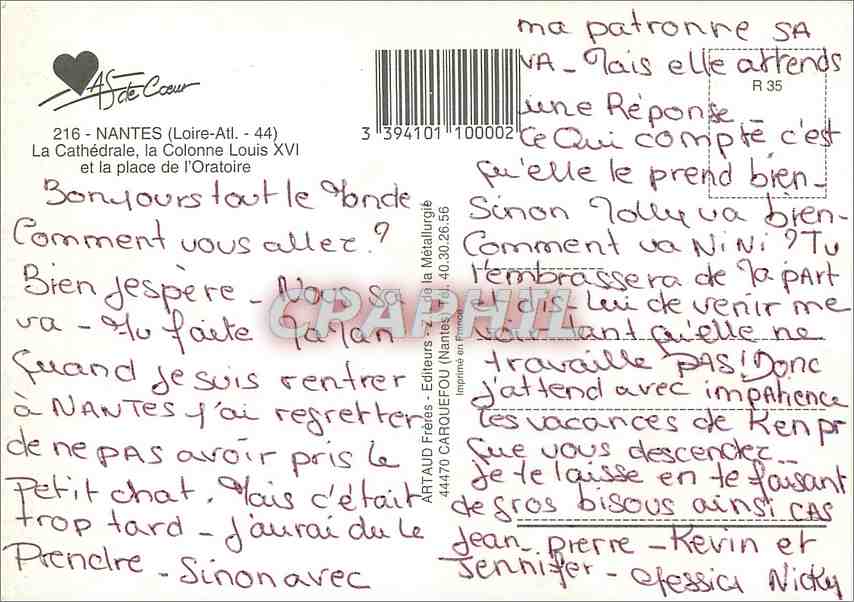 AS de Cœur
216 - NANTES (Loire-Atl. - 44)
La Cathédrale, la Colonne Louis XVI
et la place de l'Oratoire
3 394101 100002
R 35
Bonjours tout le Monde
Comment vous allez ?
Bien j'espère - Nous sa
va - Tu faite
Quand je suis rentrer
à NANTES j'ai regretter
de ne PAS avoir pris le
Petit chat. Mais c'était
trop tard - j'aurai du le
Prendre - Sinon avec
ARTAUD Frères - Editeurs - de la Métallurgie
44470 CARQUEFOU (Nantes) 40.30.26.56
Imprimé en France
ma patronne SA
VA - Mais elle attends
une Réponse -
Ce Qui compte c'est
qu'elle le prend bien -
Sinon Jolly va bien -
Comment va NiNi ? Tu
l'embrassera de Ma pArt
et dis Lui de venir me
voir tant qu'elle ne
travaille PAS ! Donc
j'attend avec impAtience
les vacances de Ken pr
que vous descendez -
je te laisse en te faisant
de gros bisous ainsi CAS
Jean - pierre - Kevin et
Jennifer - Jessica Nicky
CPARPHIL